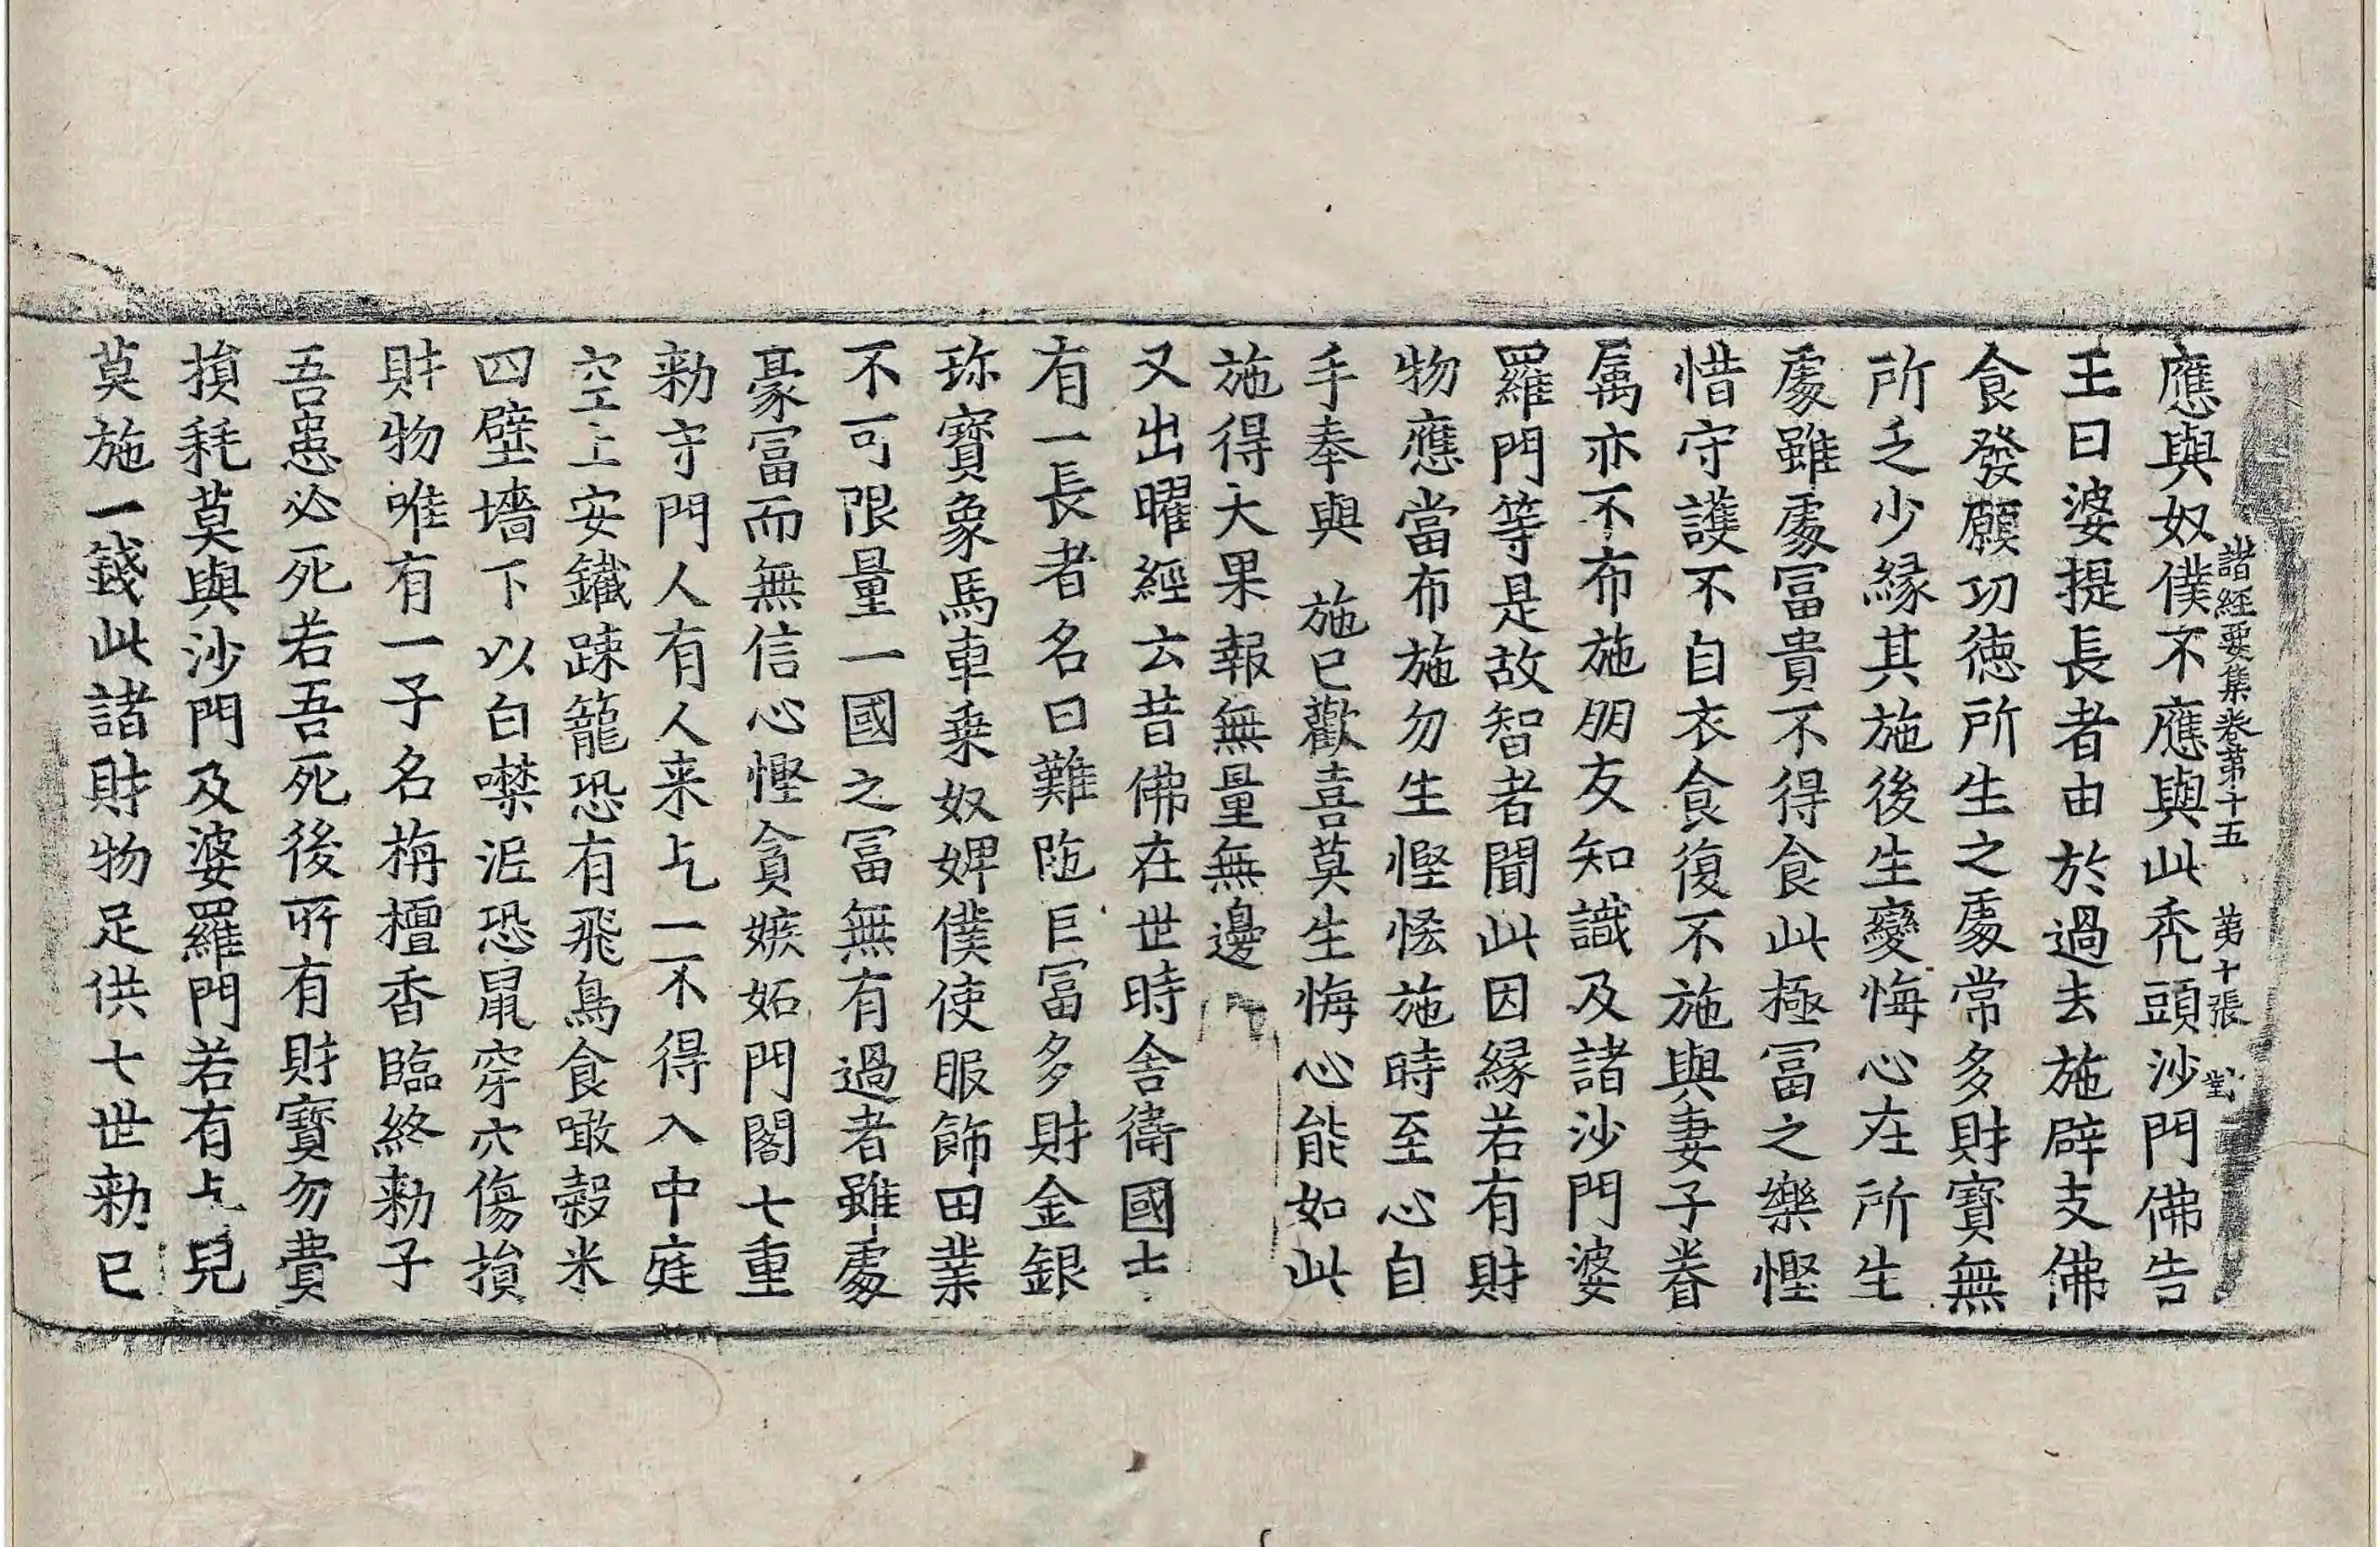 諸經要集卷第十五 第十張 對
應與奴僕不應與此禿頭沙門佛告
王曰婆提長者由於過去施辟支佛
食發願功德所生之處常多財寶無
所乏少緣其施後生變悔心在所生
處雖處冨貴不得食此極冨之樂慳
惜守護不自衣食復不施與妻子眷
属亦不布施朋友知識及諸沙門婆
羅門等是故智者聞此因緣若有財
物應當布施勿生慳悋施時至心自
手奉與 施已歡喜莫生悔心能如此
施得大果報無量無邊
又出曜經云昔佛在世時舍衛國土
有一長者名曰難陁巨冨多財金銀
珎寶象馬車乗奴婢僕使服飾田業
不可限量一國之冨無有過者雖處
豪冨而無信心慳貪嫉妬門閤七重
勑守門人有人来乞一不得入中庭
空上安鐵踈籠恐有飛鳥食噉穀米
四壁墻下以白㘗泥恐鼠穿穴傷損
財物唯有一子名栴檀香臨終勑子
吾患必死若吾死後所有財寶勿費
損耗莫與沙門及婆羅門若有乞兒
莫施一錢此諸財物足供七世勑已